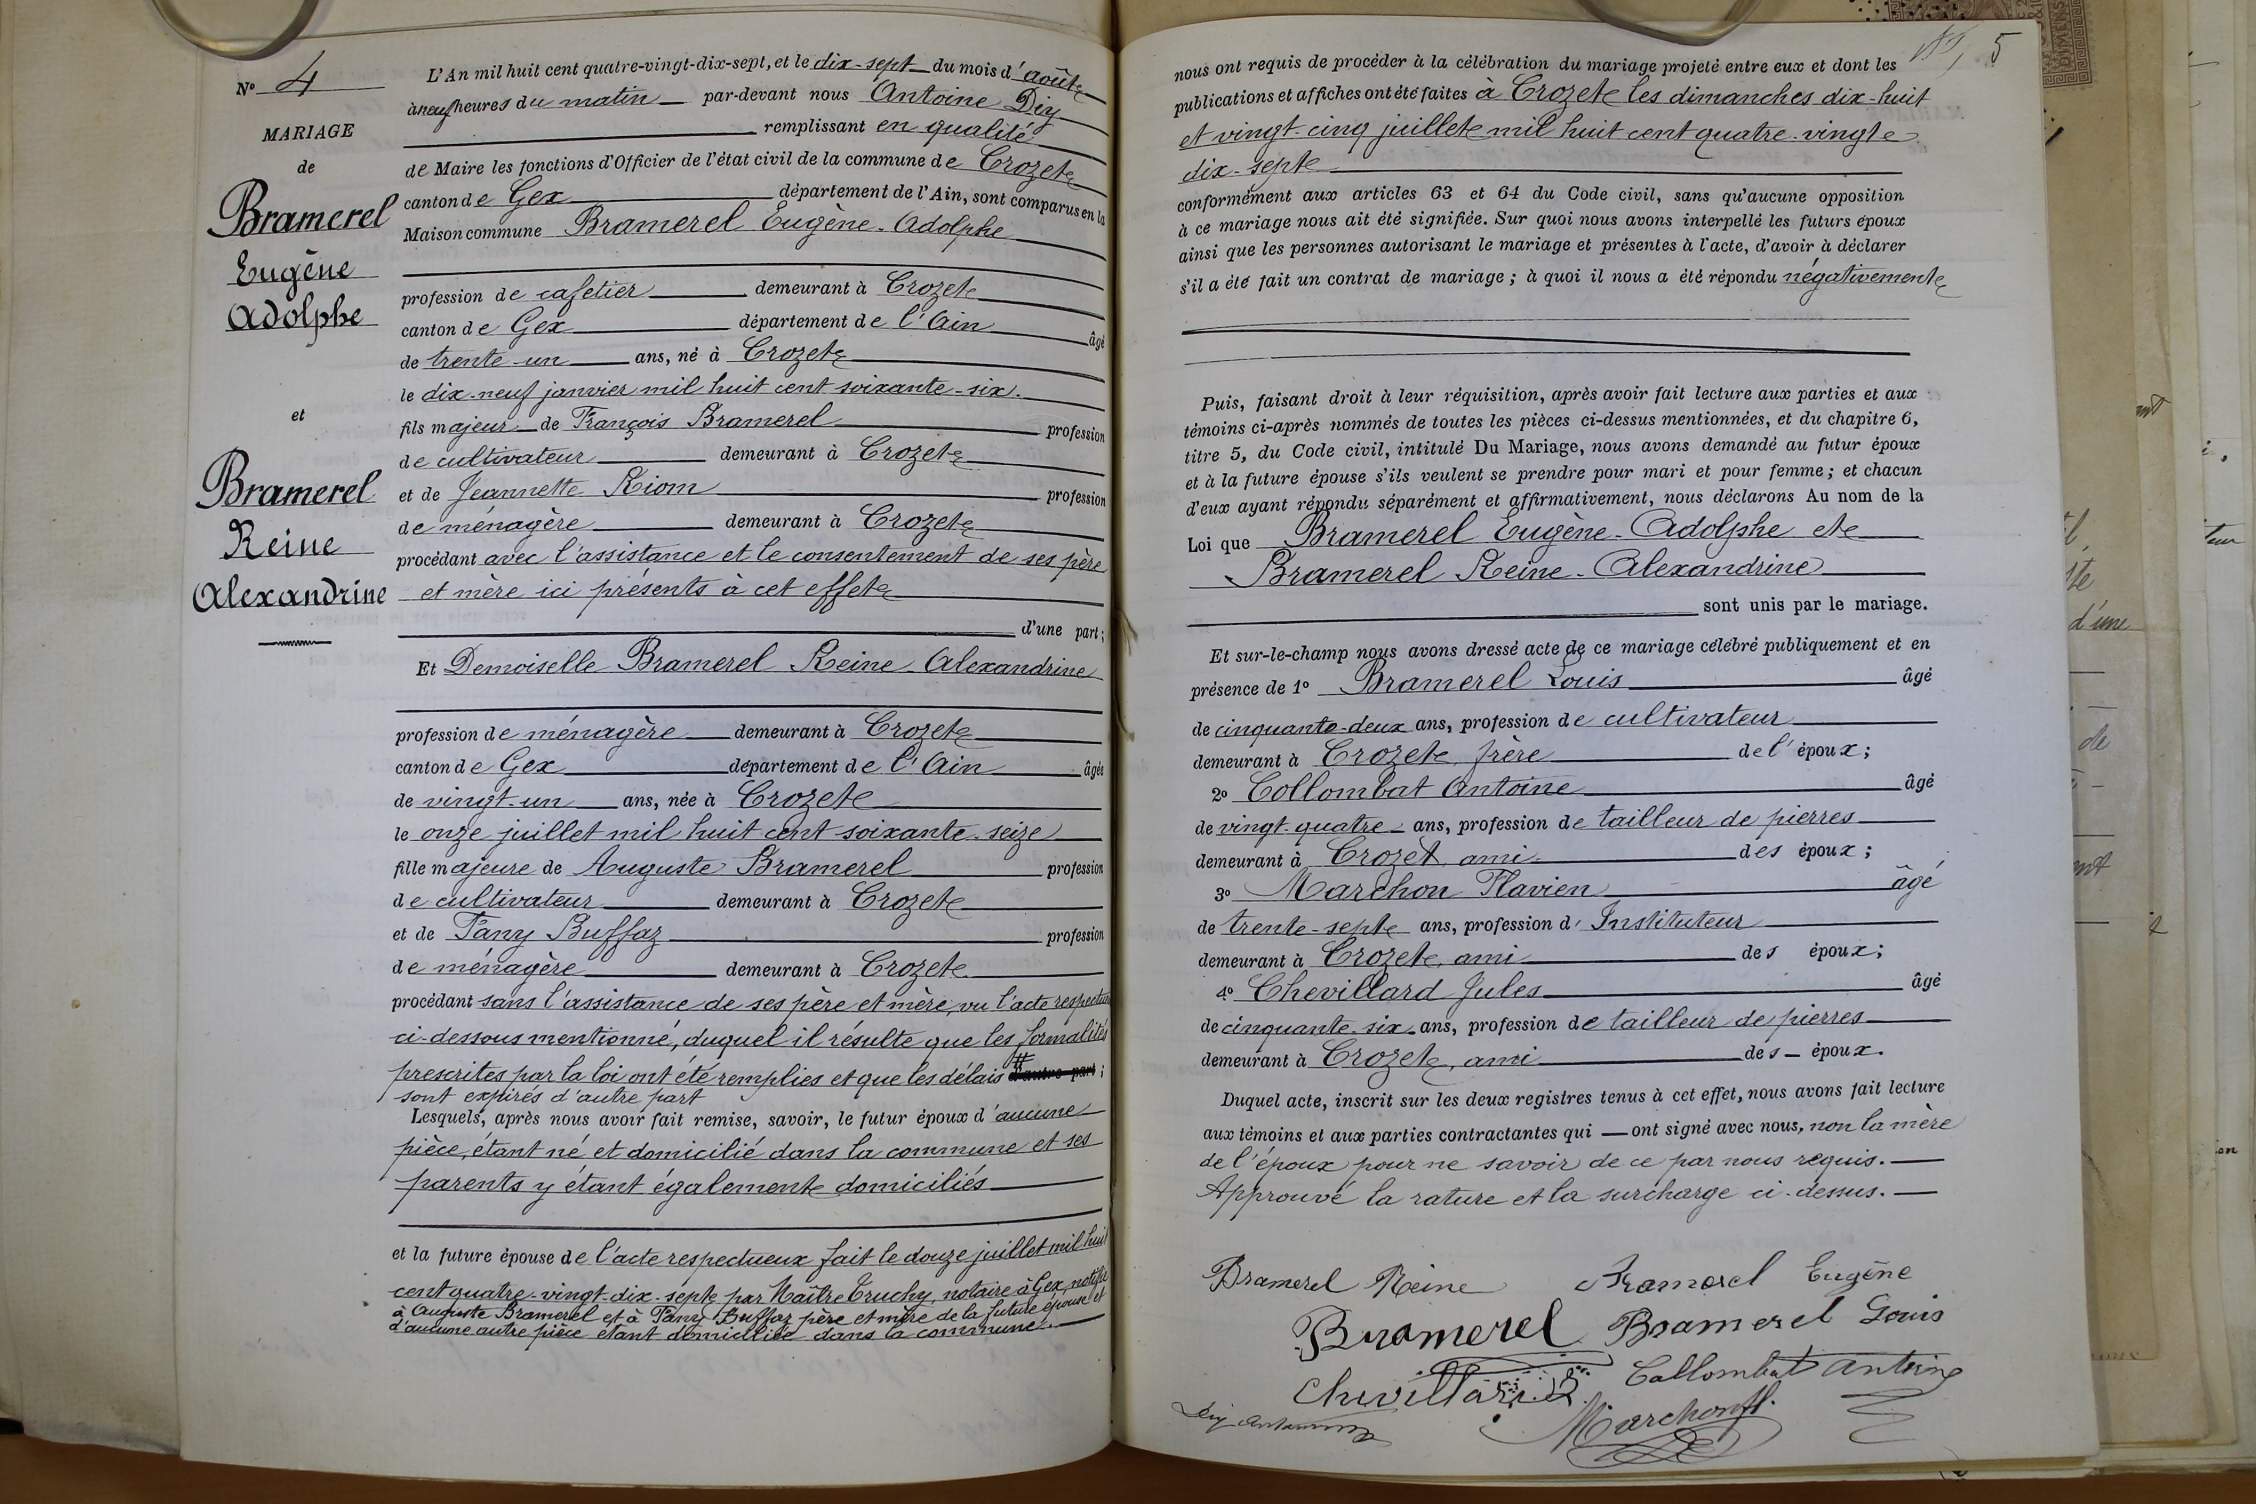 N° 4
MARIAGE
de
Bramerel
Eugène
Adolphe
et
Bramerel
Reine
Alexandrine
L'An mil huit cent quatre-vingt-dix-sept, et le dix-sept du mois d'août
à neuf heures du matin par-devant nous Antoine Diy
remplissant en qualité
de Maire les fonctions d'Officier de l'état civil de la commune de Crozet
canton de Gex département de l'Ain, sont comparus en la
Maison commune Bramerel Eugène-Adolphe
profession de cafetier demeurant à Crozet
canton de Gex département de l'Ain âgé
de trente-un ans, né à Crozet
le dix-neuf janvier mil huit cent soixante-six.
fils majeur de François Bramerel profession
de cultivateur demeurant à Crozet
et de Jeannette Riom profession
de ménagère demeurant à Crozet
procédant avec l'assistance et le consentement de ses père
et mère ici présents à cet effet
d'une part;
Et Demoiselle Bramerel Reine Alexandrine
profession de ménagère demeurant à Crozet
canton de Gex département de l'Ain âgée
de vingt-un ans, née à Crozet
le onze juillet mil huit cent soixante-seize
fille majeure de Auguste Bramerel profession
de cultivateur demeurant à Crozet
et de Fany Buffaz profession
de ménagère demeurant à Crozet
procédant sans l'assistance de ses père et mère, vu l'acte respectueux
ci-dessous mentionné, duquel il résulte que les formalités
prescrites par la loi ont été remplies et que les délais # d'autre part;
sont expirés d'autre part
Lesquels, après nous avoir fait remise, savoir, le futur époux d'aucune
pièce, étant né et domicilié dans la commune et ses
parents y étant également domiciliés
et la future épouse de l'acte respectueux fait le douze juillet mil huit
cent quatre-vingt-dix-sept par Maître Truchy, notaire à Gex, notifié
à Auguste Bramerel et à Fany Buffaz père et mère de la future épouse et
d'aucune autre pièce étant domiciliée dans la commune.
5
nous ont requis de procéder à la célébration du mariage projeté entre eux et dont les
publications et affiches ont été faites à Crozet les dimanches dix-huit
et vingt-cinq juillet mil huit cent quatre-vingt
dix-sept
conformément aux articles 63 et 64 du Code civil, sans qu'aucune opposition
à ce mariage nous ait été signifiée. Sur quoi nous avons interpellé les futurs époux
ainsi que les personnes autorisant le mariage et présentes à l'acte, d'avoir à déclarer
s'il a été fait un contrat de mariage; à quoi il nous a été répondu négativement
Puis, faisant droit à leur réquisition, après avoir fait lecture aux parties et aux
témoins ci-après nommés de toutes les pièces ci-dessus mentionnées, et du chapitre 6,
titre 5, du Code civil, intitulé Du Mariage, nous avons demandé au futur époux
et à la future épouse s'ils veulent se prendre pour mari et pour femme; et chacun
d'eux ayant répondu séparément et affirmativement, nous déclarons Au nom de la
Loi que Bramerel Eugène-Adolphe et
Bramerel Reine-Alexandrine
sont unis par le mariage.
Et sur-le-champ nous avons dressé acte de ce mariage célébré publiquement et en
présence de 1° Bramerel Louis âgé
de cinquante-deux ans, profession de cultivateur
demeurant à Crozet, frère de l'époux;
2° Collombat Antoine âgé
de vingt-quatre ans, profession de tailleur de pierres
demeurant à Crozet, ami des époux;
3° Marchon Flavien âgé
de trente-sept ans, profession d'Instituteur
demeurant à Crozet, ami des époux;
4° Chevillard Jules âgé
de cinquante-six ans, profession de tailleur de pierres
demeurant à Crozet, ami des époux.
Duquel acte, inscrit sur les deux registres tenus à cet effet, nous avons fait lecture
aux témoins et aux parties contractantes qui ont signé avec nous, non la mère
de l'époux pour ne savoir de ce par nous requis.
Approuvé la rature et la surcharge ci-dessus.
Bramerel Reine Bramerel Eugène
Bramerel Bramerel Louis
Chevillard Collombat Antoine
Diy Antoine Marchon fl.